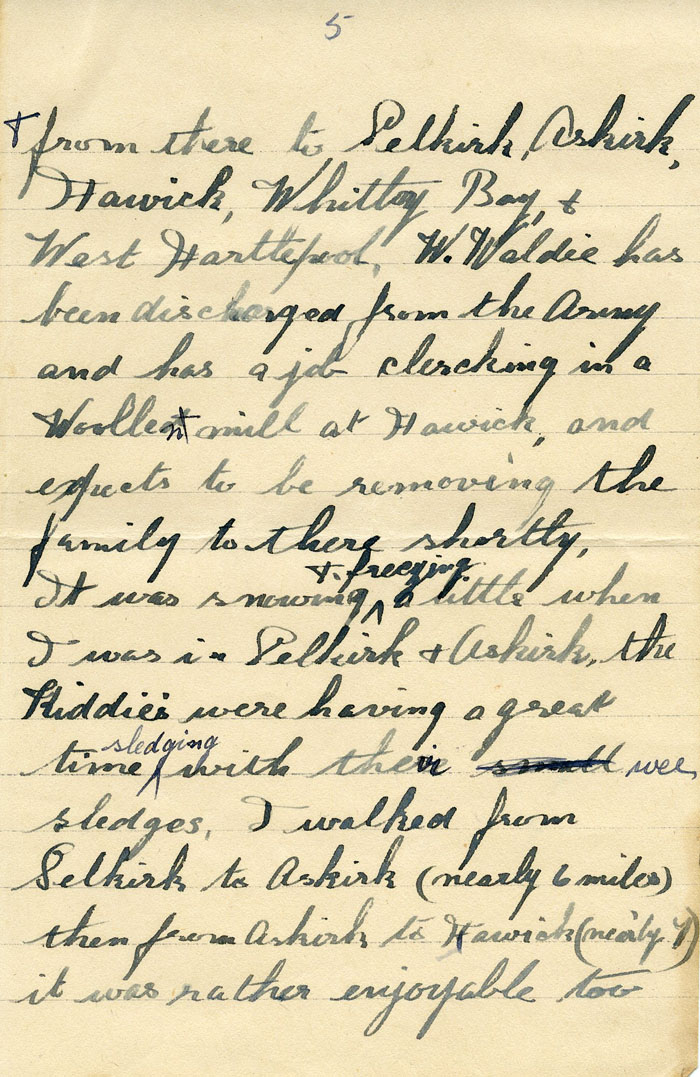 5
+ from there to Selkirk, Askirk,
Hawick, Whitby Bay, +
West Hartlepool, W. Waldie has
been discharged from the Army
and has a job clercking in a
Woollen mill at Hawick, and
expects to be removing the
family to there shortly,
+ freezing
It was snowing ^ a little when
I was in Selkirk + Askirk, the
Kiddies were having a great
sledging
time ^ with their small wee
sledges, I walked from
Selkirk to Askirk (nearly 6 miles)
then from Askirk to Hawick (nearly 7)
it was rather enjoyable too